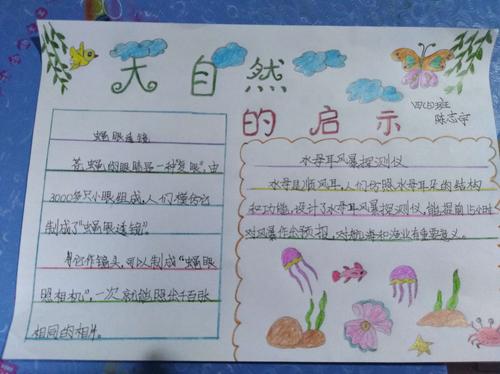 大自然
的启示
四(5)班
陈志宇
蝇眼透镜
苍蝇的眼睛是一种"复眼",由
3000多只小眼组成,人们模仿它
制成了"蝇眼透镜"。
用它作镜头,可以制成"蝇眼
照相机",一次就能照出千百张
相同的相片。
水母耳风暴探测仪
水母是顺风耳,人们仿照水母耳朵的结构
和功能,设计了水母耳风暴探测仪,能提前15小时
对风暴作出预报,对航海和渔业有重要意义。